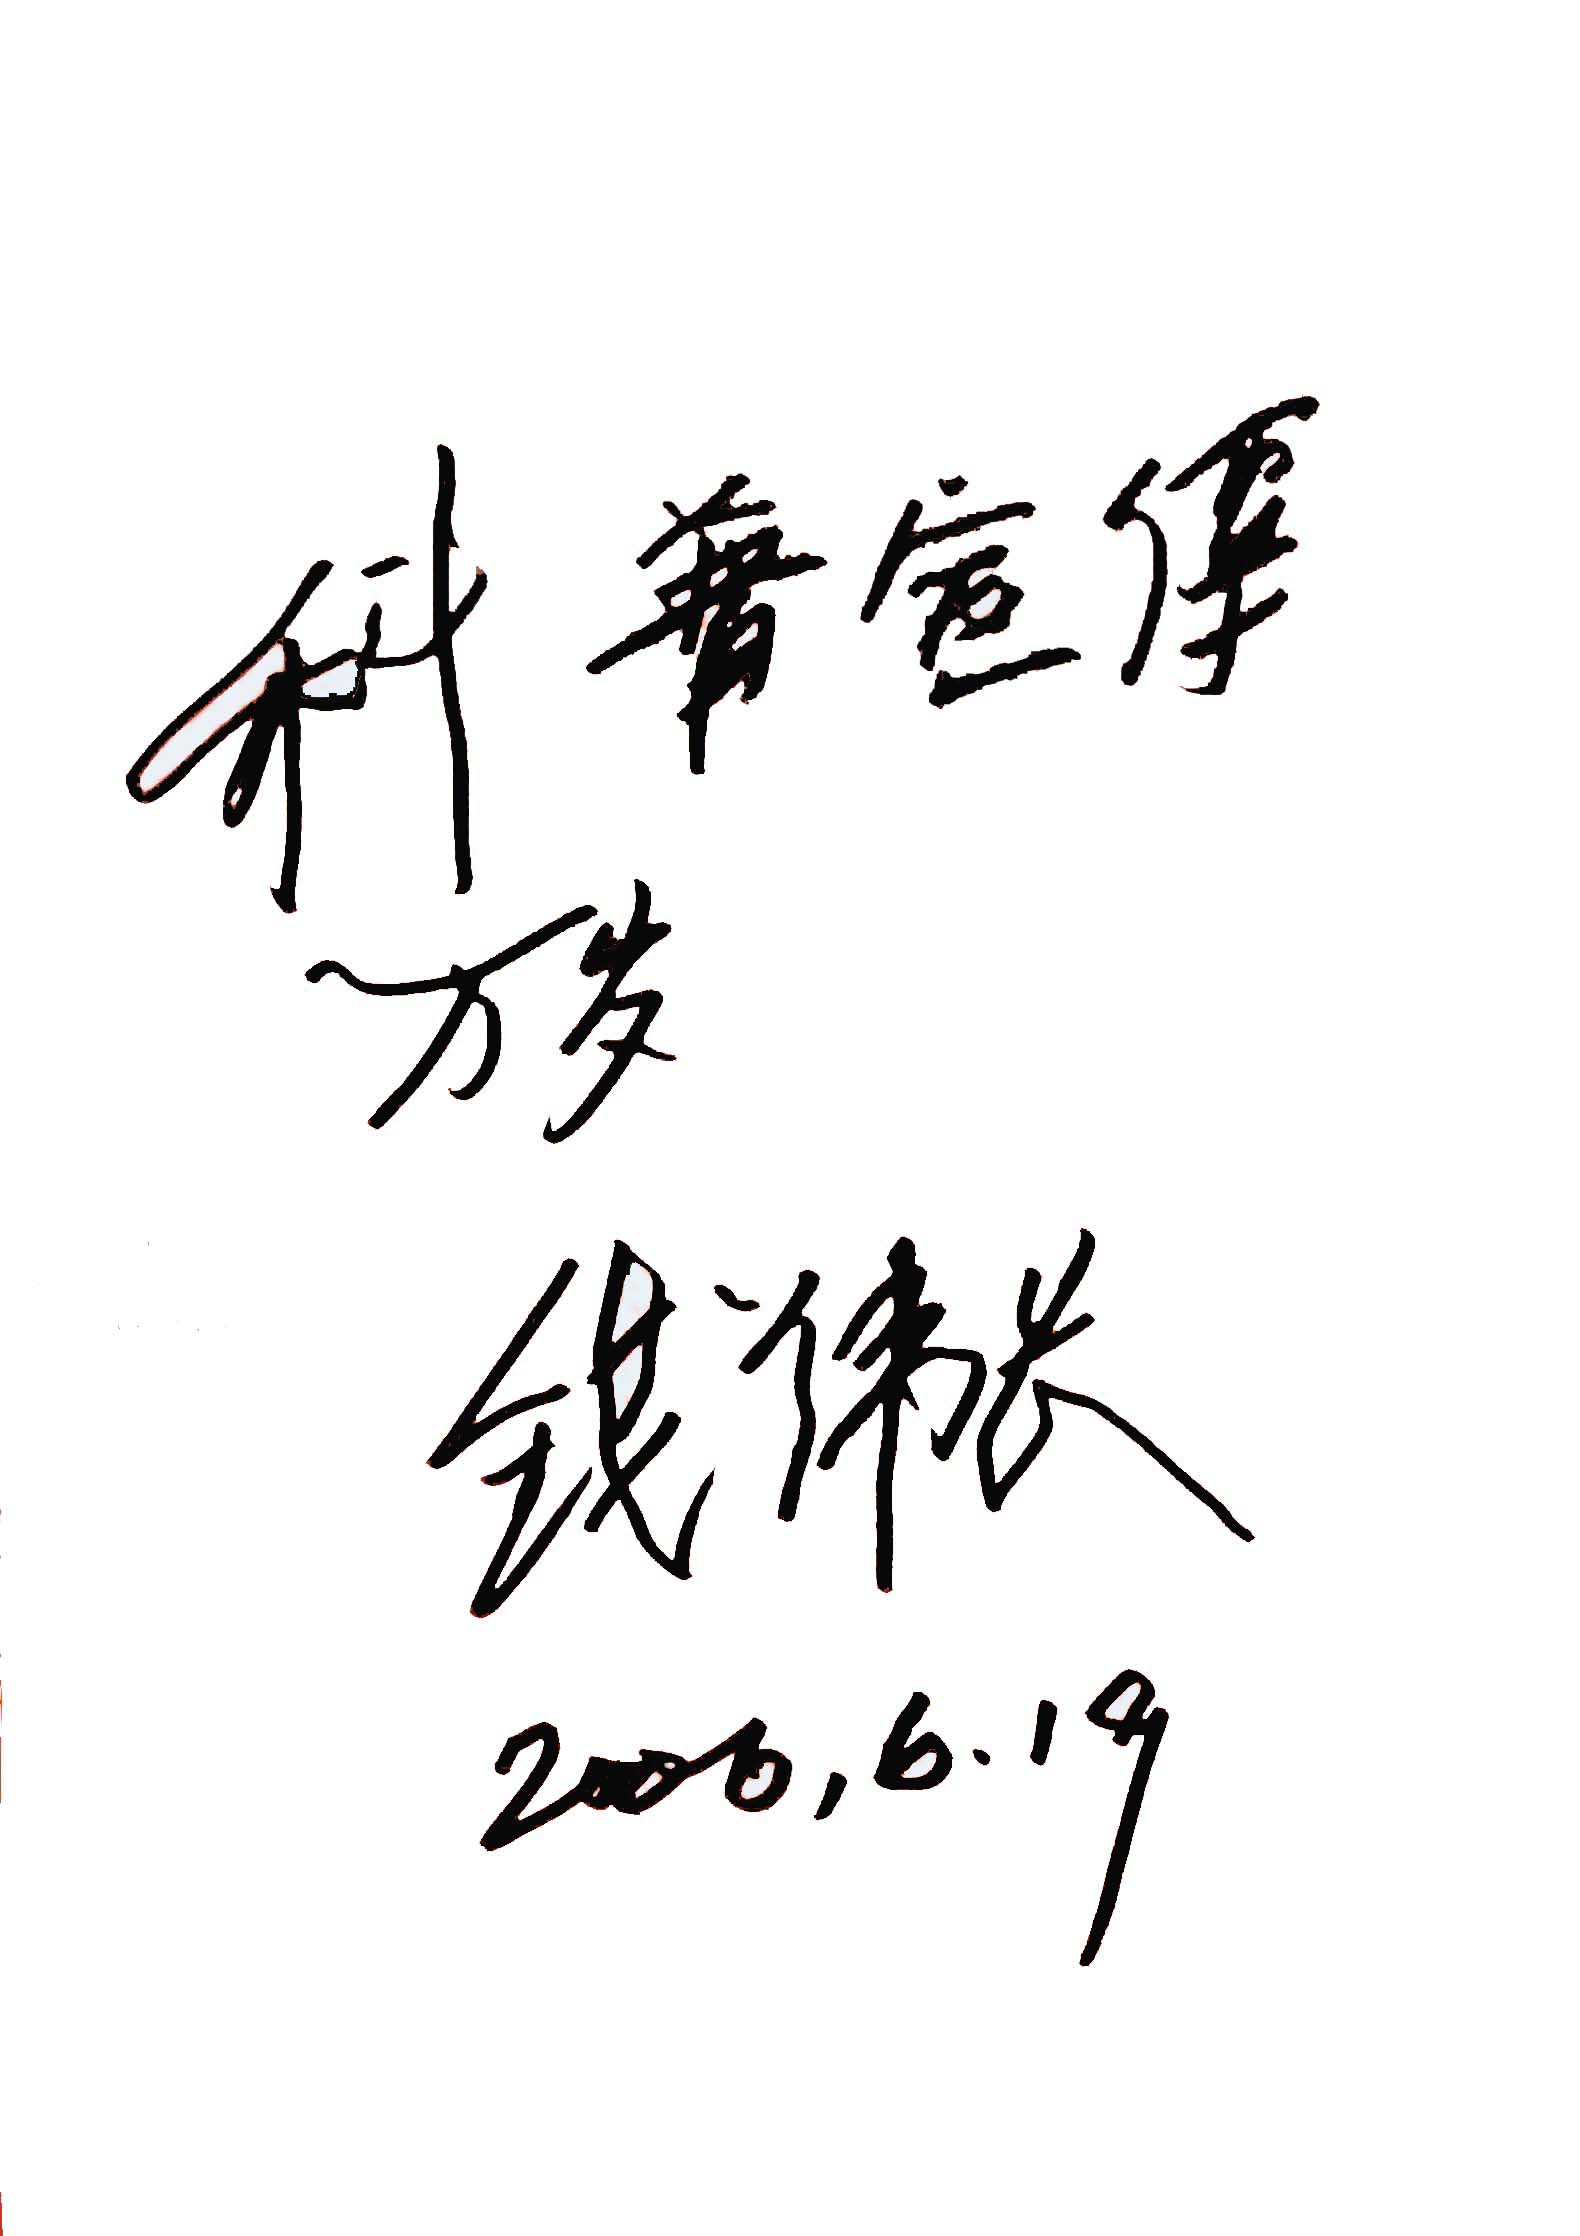 科華宣傳
万岁
钱伟长
2006,6.19